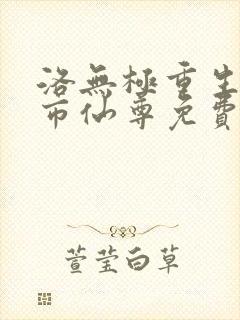 洛無極重生
市仙尊免費
萱莹白草